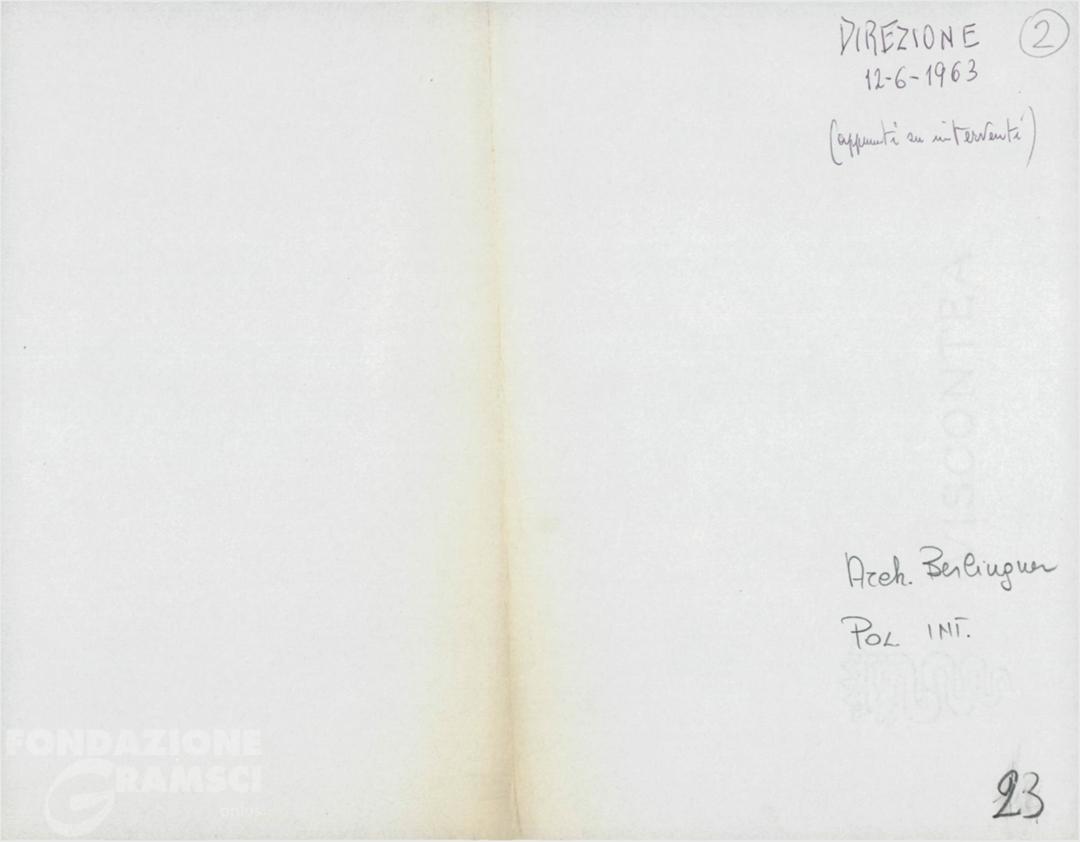 DIREZIONE 2
12-6-1963
(appunti su interventi)
VISCONTEA
Arch. Berlinguer
POL INT.
23
FONDAZIONE
GRAMSCI
onlus